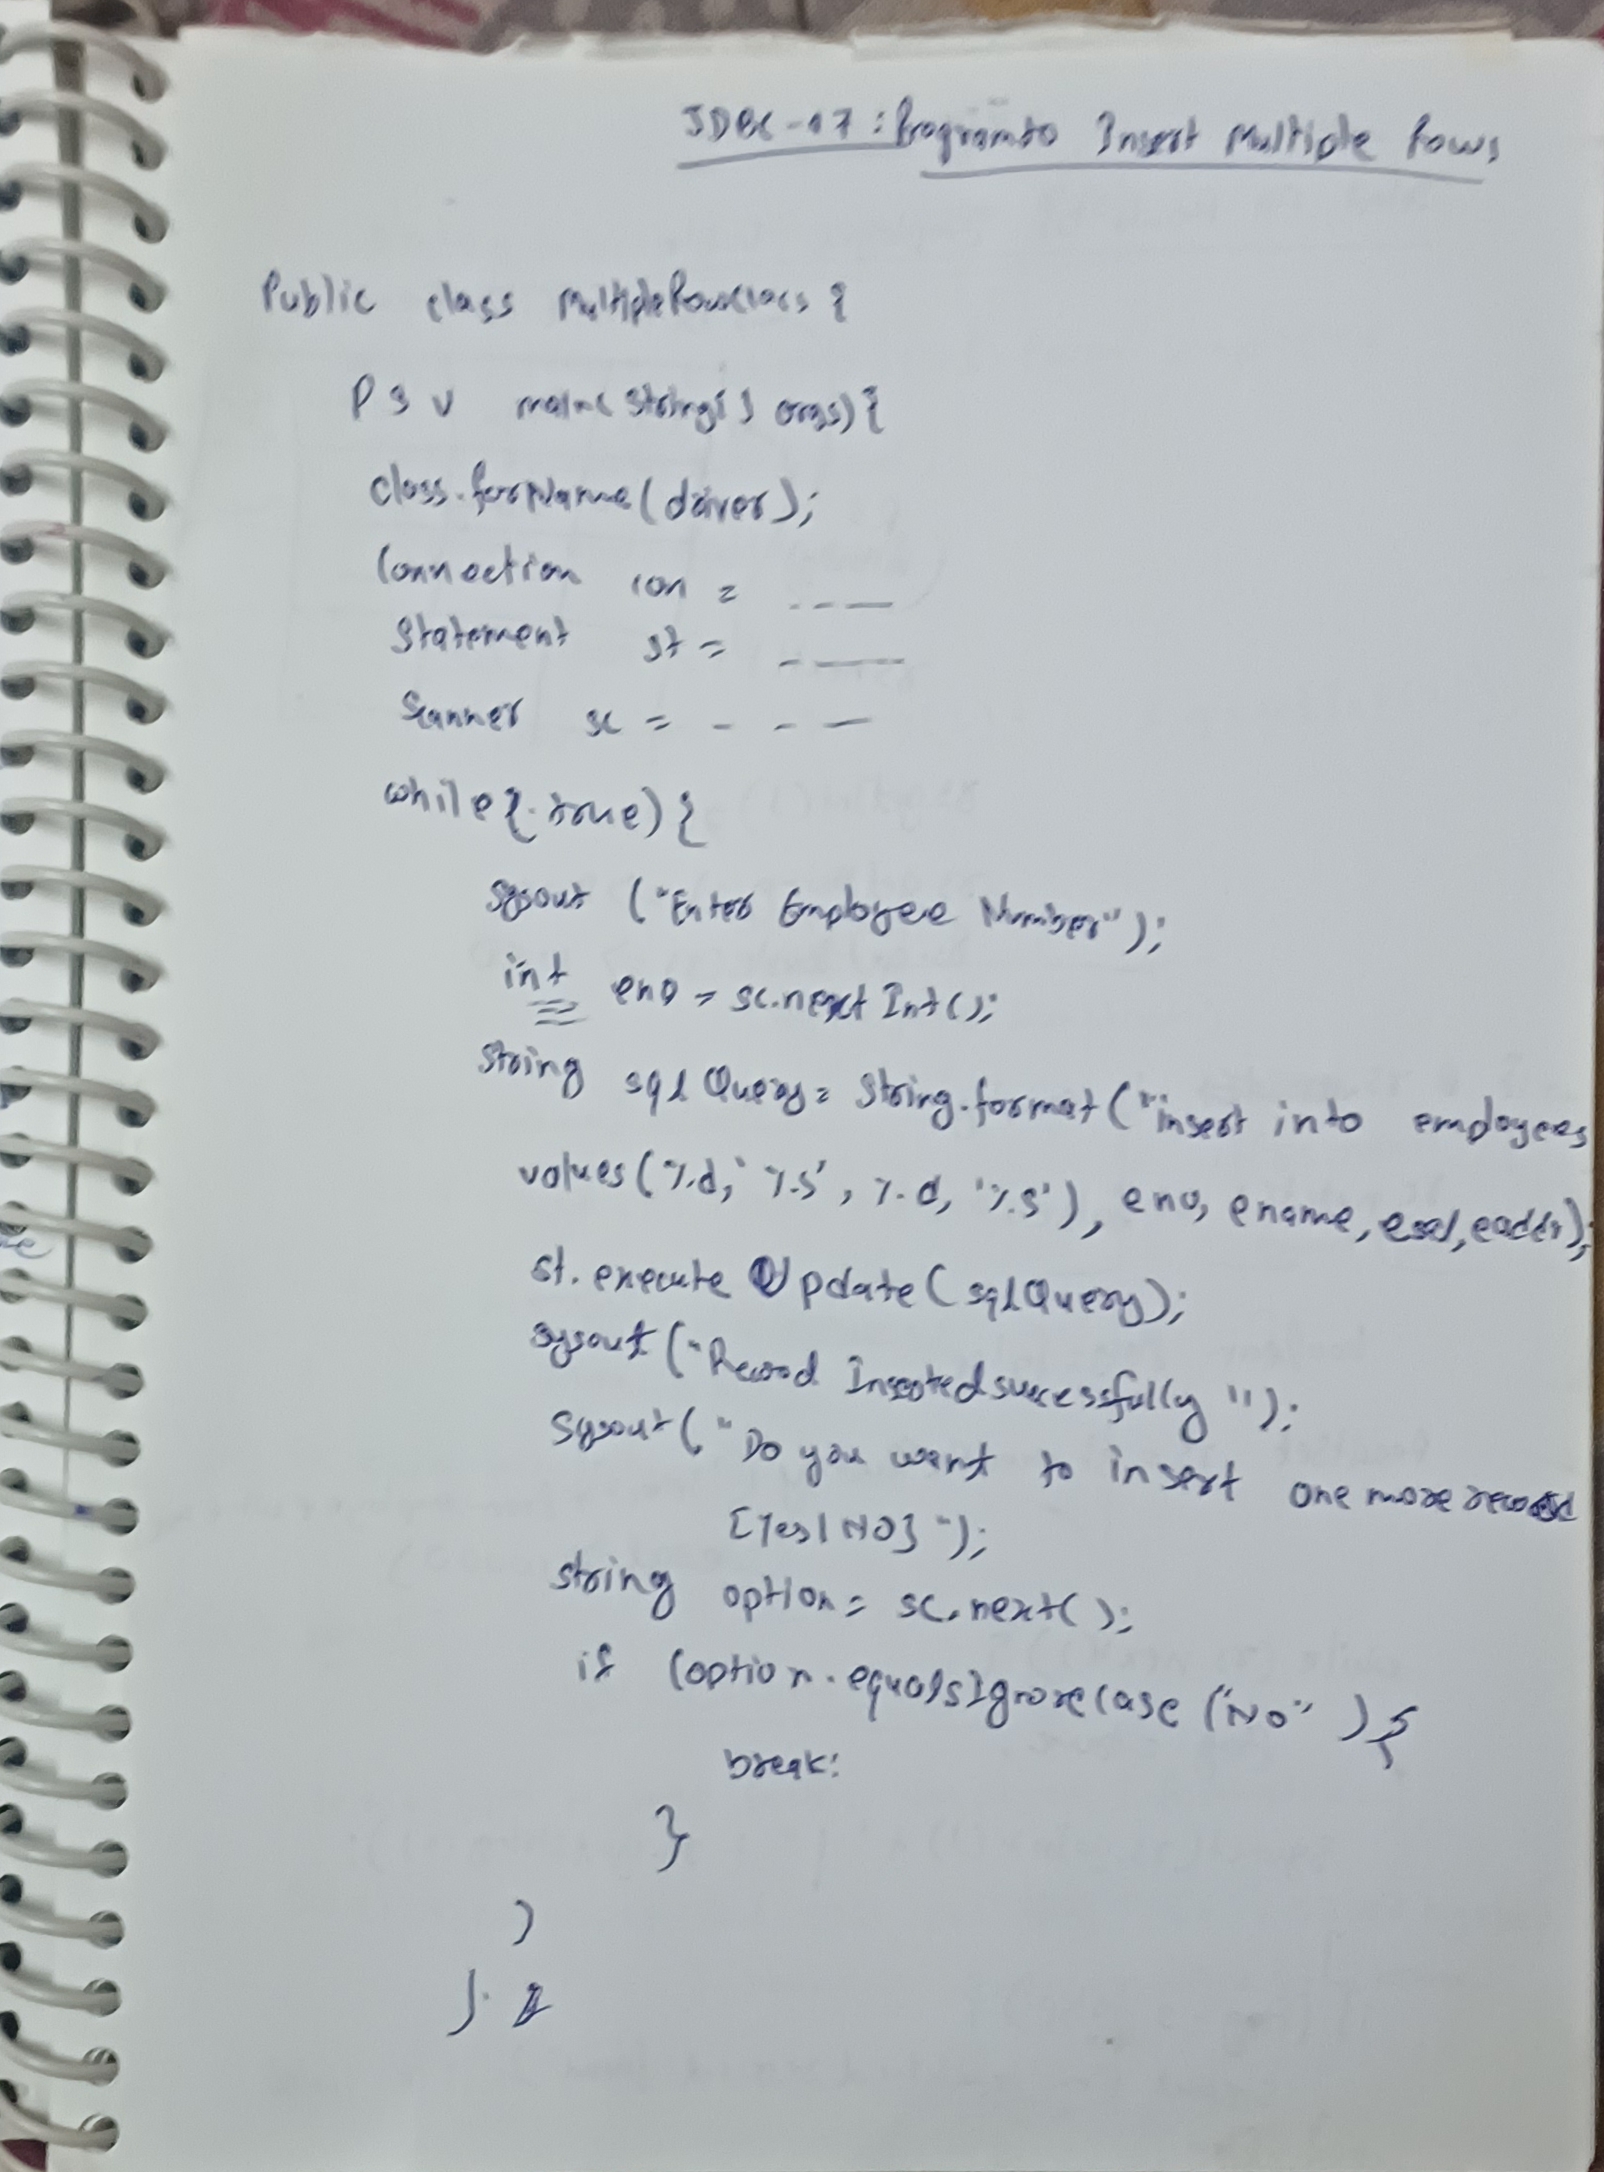 JDBC-17: Program to Insert Multiple Rows
Public class MultipleRowClass {
P S V main(String[] args) {
class.forName(driver);
Connection con = ----
Statement st = ----
Scanner sc = - - -
while{ true) {
sysout ("Enter Employee Number");
int eno = sc.next Int();
String sql Query = String.format("insert into employees
values(%d, '%s', %d, '%s'), eno, ename, esal, eaddr);
st. execute Update(sqlQuery);
sysout ("Record Inserted successfully");
Sysout("Do you want to insert one more record
[Yes|NO]");
string option = sc.next();
if (option.equalsIgnorecase("No") {
break;
}
}
}